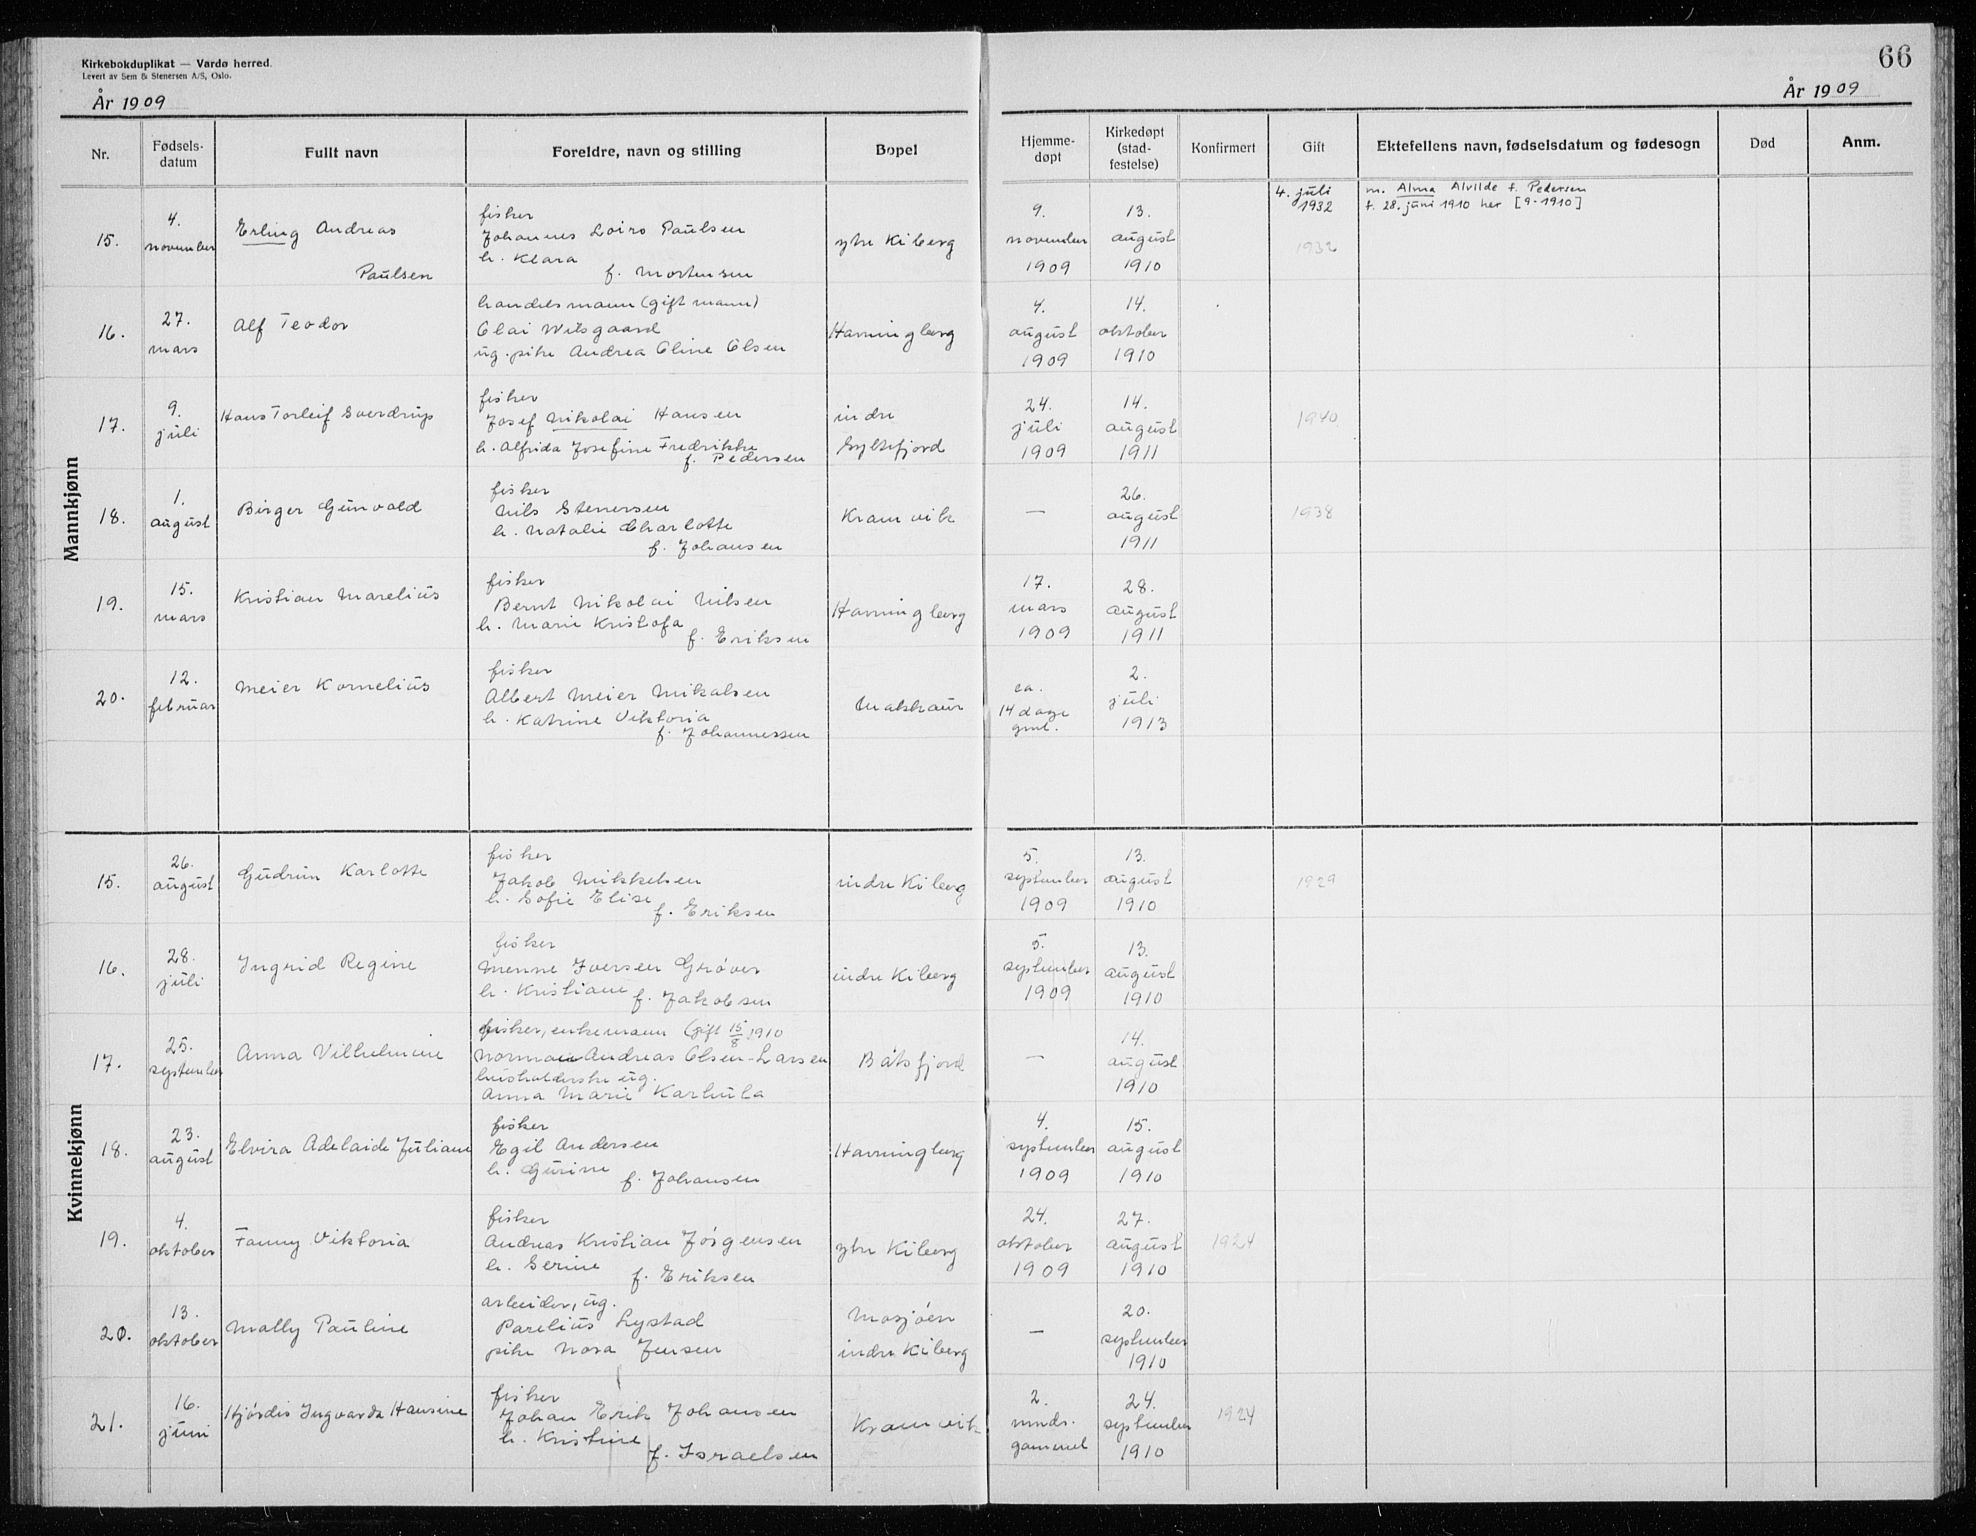 66
Kirkebokduplikat — Vardø herred.
Levert av Sem & Stenersen A/S, Oslo.
År 1909
År 1909
Nr. Fødsels- datum Fullt navn Foreldre, navn og stilling Bopel Hjemme- døpt Kirkedøpt (stad- festelse) Konfirmert Gift Ektefellens navn, fødselsdatum og fødesogn Død Anm.
Mannkjønn
4. fisker 9. 13. 4. juli m. Alma Alvilde f. Pedersen
15. november Erling Andreas Johannes Loiro Paulsen ytre Kiberg november august 1932 f. 28. juni 1910 her [9-1910]
Paulsen h. Klara f. Mortensen 1909 1910 1932
27. handelsmann (gift mann) 4. 14.
16. mars Alf Teodor Olai Witsgaard Havningberg august oktober
ug. pike Andrea Oline Olsen 1909 1910
9. fisker 24. 14.
17. juli Hans Torleif Sverdrup Josef Nikolai Hansen indre juli august 1940
h. Alfrida Josefine Fredrikke Syltefjord 1909 1911
f. Pedersen
1. fisker 26.
18. august Birger Gunvald Nils Stenersen Kramvik — august 1938
h. Natalie Charlotte 1911
f. Johansen
15. fisker 17. 28.
19. mars Kristian Marelius Bernt Nikolai Nilsen Havningberg mars august
h. Marie Kristofa 1909 1911
f. Eriksen
12. fisker ca. 2.
20. februar Meier Kornelius Albert Meier Mikalsen Makkaur 14 dage juli
h. Katrine Viktoria gml. 1913
f. Johannessen
Kvinnekjønn
26. fisker 5. 13.
15. august Gudrun Karlotte Jakob Mikkelsen indre Kiberg september august 1929
h. Sofie Elise 1909 1910
f. Eriksen
28. fisker 5. 13.
16. juli Ingrid Regine Menne Iversen Grøver indre Kiberg september august
h. Kristiane f. Jakobsen 1909 1910
25. fisker, enkemann (gift 15/8 1910 14.
17. september Anna Vilhelmine Norman Andreas Olsen-Larsen Båtsfjord — august
husholderske ug. 1910
Anna Marie Karhula
23. fisker 4. 15.
18. august Elvira Adelaide Juliane Egil Andersen Havningberg september august
h. Gurine f. Johansen 1909 1910
4. fisker 24. 27.
19. oktober Fanny Viktoria Andreas Kristian Jørgensen ytre Kiberg oktober august 1924
h. Serine f. Eriksen 1909 1910
13. arbeider, ug. Mosjøen 20.
20. oktober Mally Pauline Parelius Lystad — september
pike Nora Jensen indre Kiberg 1910
16. fisker 2. 24.
21. juni Hjørdis Ingvarda Hansine Johan Erik Johansen Kramvik mnds. september 1924
h. Kristine gammel 1910
f. Israelsen